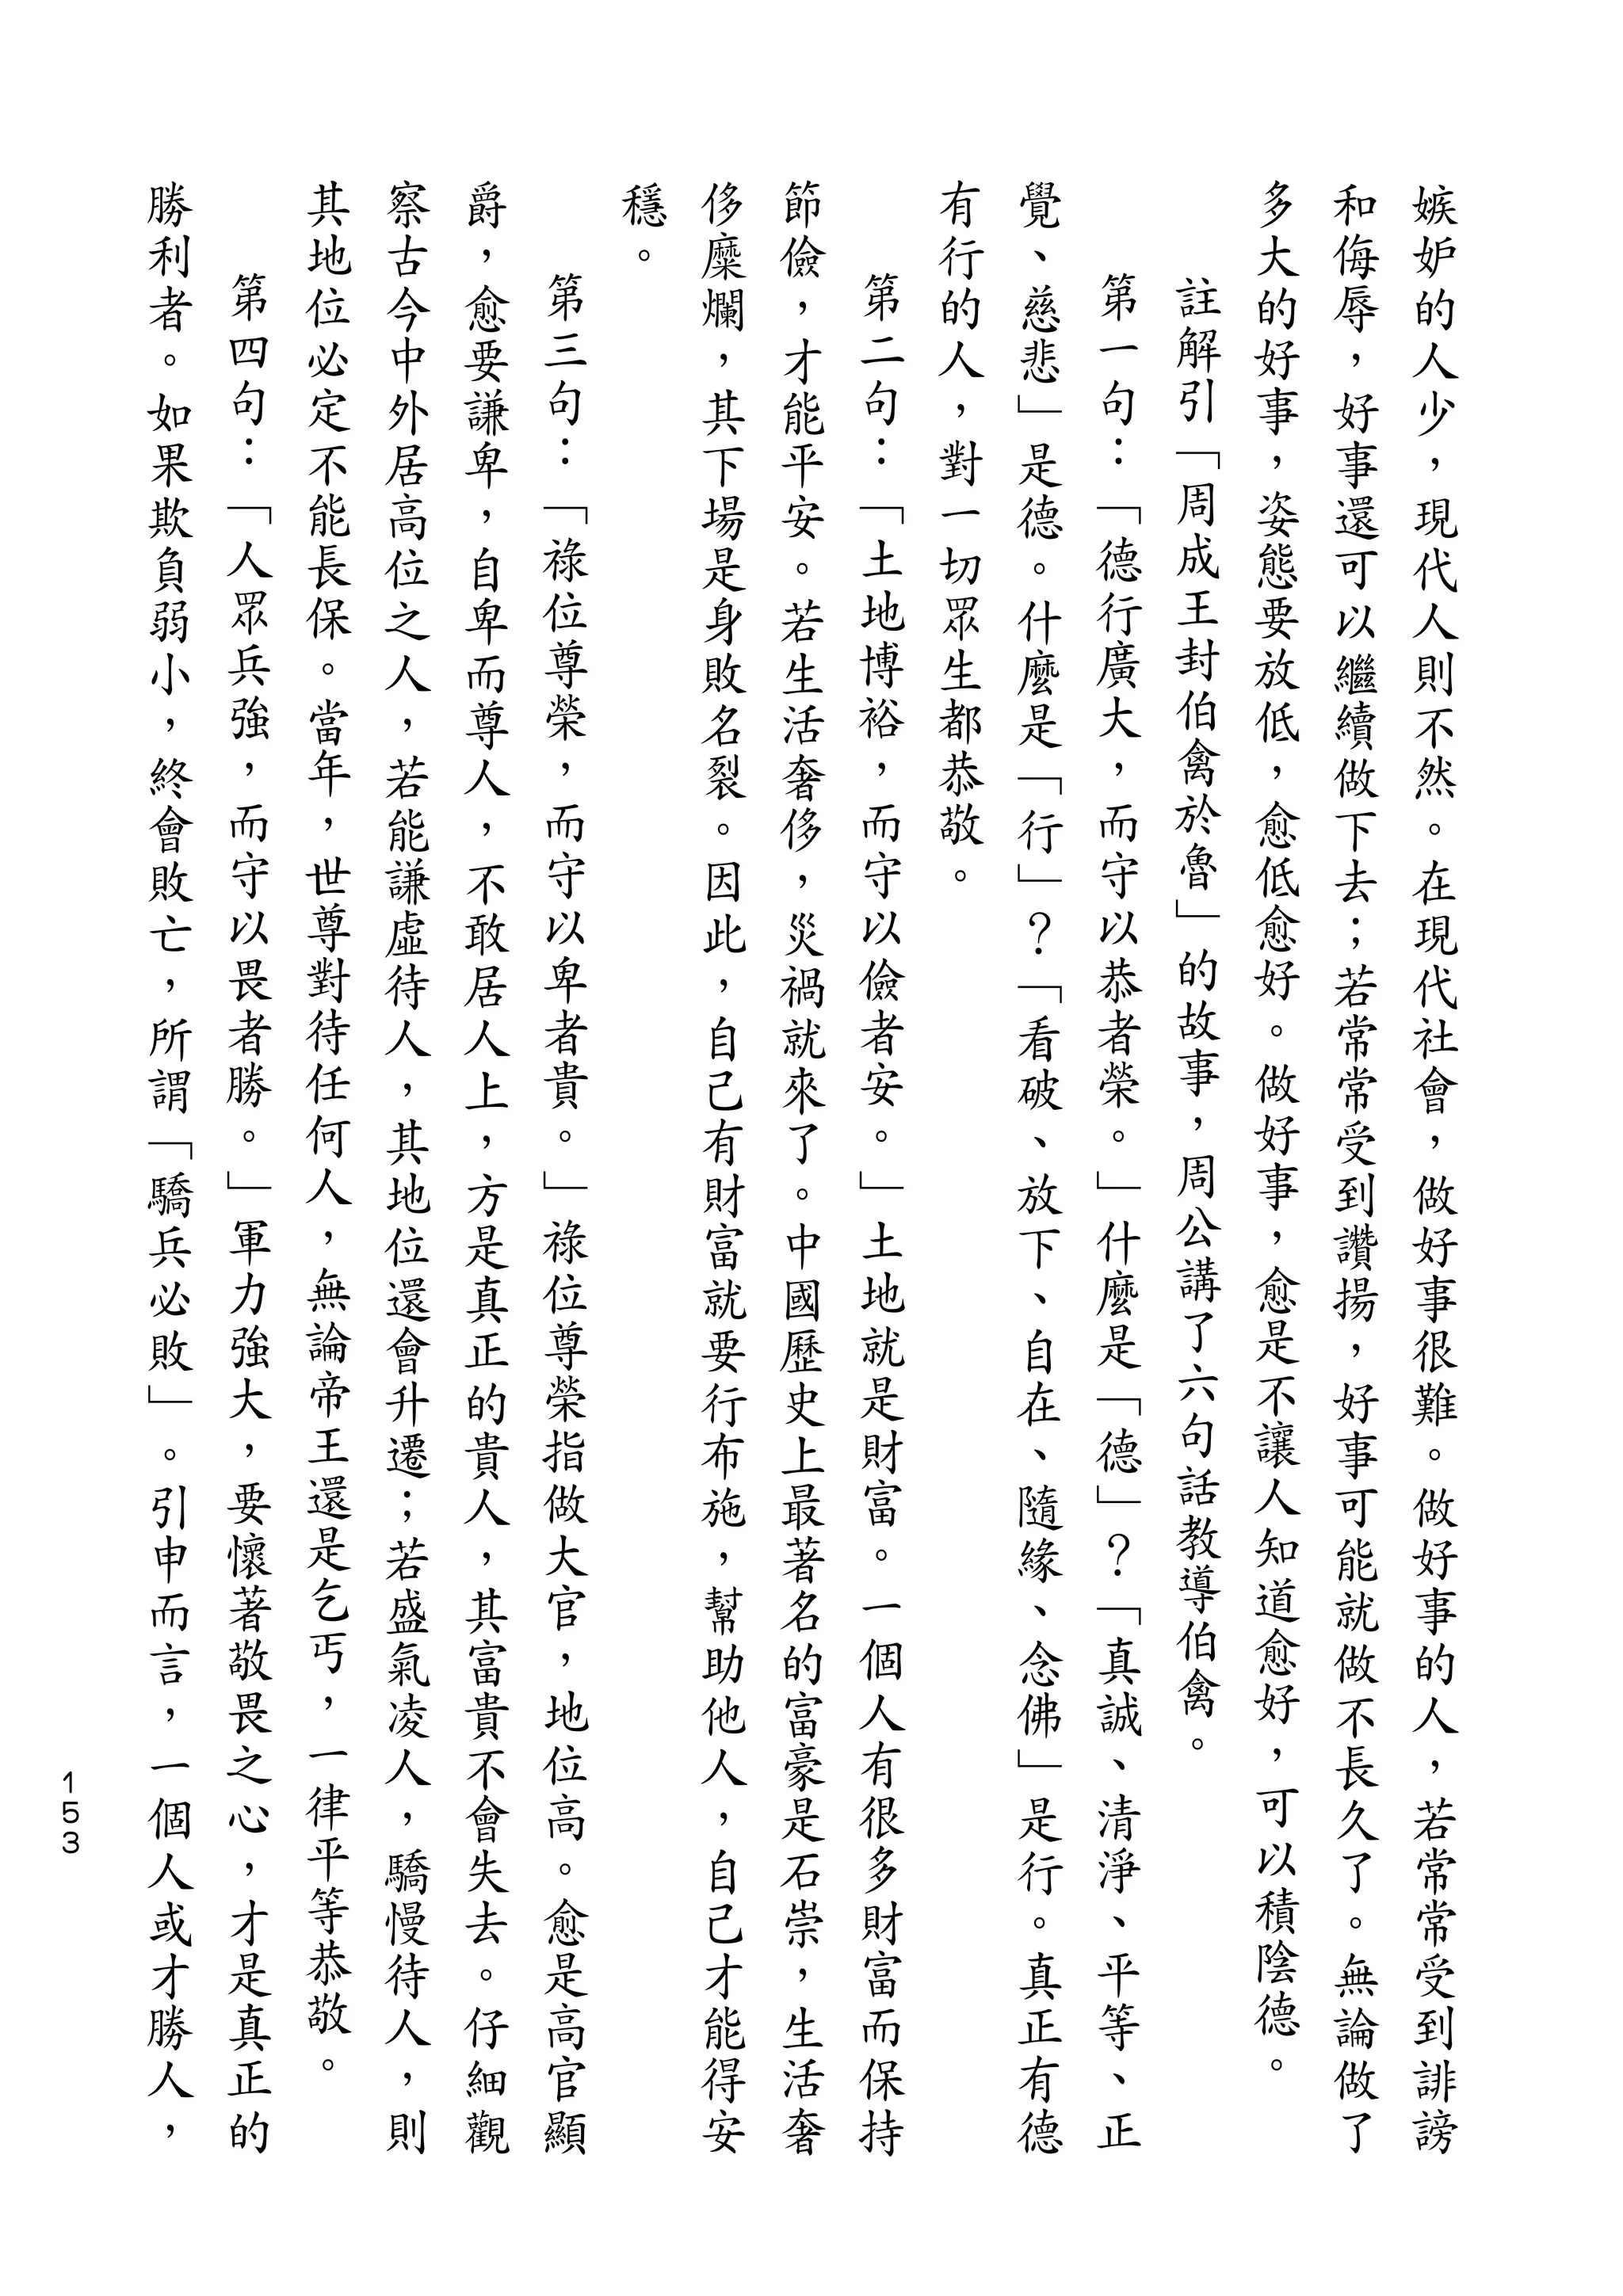 嫉妒的人少，現代人則不然。在現代社會，做好事很難。做好事的人，若常常受到誹謗
和侮辱，好事還可以繼續做下去；若常常受到讚揚，好事可能就做不長久了。無論做了
多大的好事，姿態要放低，愈低愈好。做好事，愈是不讓人知道愈好，可以積陰德。
註解引「周成王封伯禽於魯」的故事，周公講了六句話教導伯禽。
第一句：「德行廣大，而守以恭者榮。」什麼是「德」？「真誠、清淨、平等、正
覺、慈悲」是德。什麼是「行」？「看破、放下、自在、隨緣、念佛」是行。真正有德
有行的人，對一切眾生都恭敬。
第二句：「土地博裕，而守以儉者安。」土地就是財富。一個人有很多財富而保持
節儉，才能平安。若生活奢侈，災禍就來了。中國歷史上最著名的富豪是石崇，生活奢
侈糜爛，其下場是身敗名裂。因此，自己有財富就要行布施，幫助他人，自己才能得安
穩。
第三句：「祿位尊榮，而守以卑者貴。」祿位尊榮指做大官，地位高。愈是高官顯
爵，愈要謙卑，自卑而尊人，不敢居人上，方是真正的貴人，其富貴不會失去。仔細觀
察古今中外居高位之人，若能謙虛待人，其地位還會升遷；若盛氣凌人，驕慢待人，則
其地位必定不能長保。當年，世尊對待任何人，無論帝王還是乞丐，一律平等恭敬。
第四句：「人眾兵強，而守以畏者勝。」軍力強大，要懷著敬畏之心，才是真正的
勝利者。如果欺負弱小，終會敗亡，所謂「驕兵必敗」。引申而言，一個人或才勝人，
153